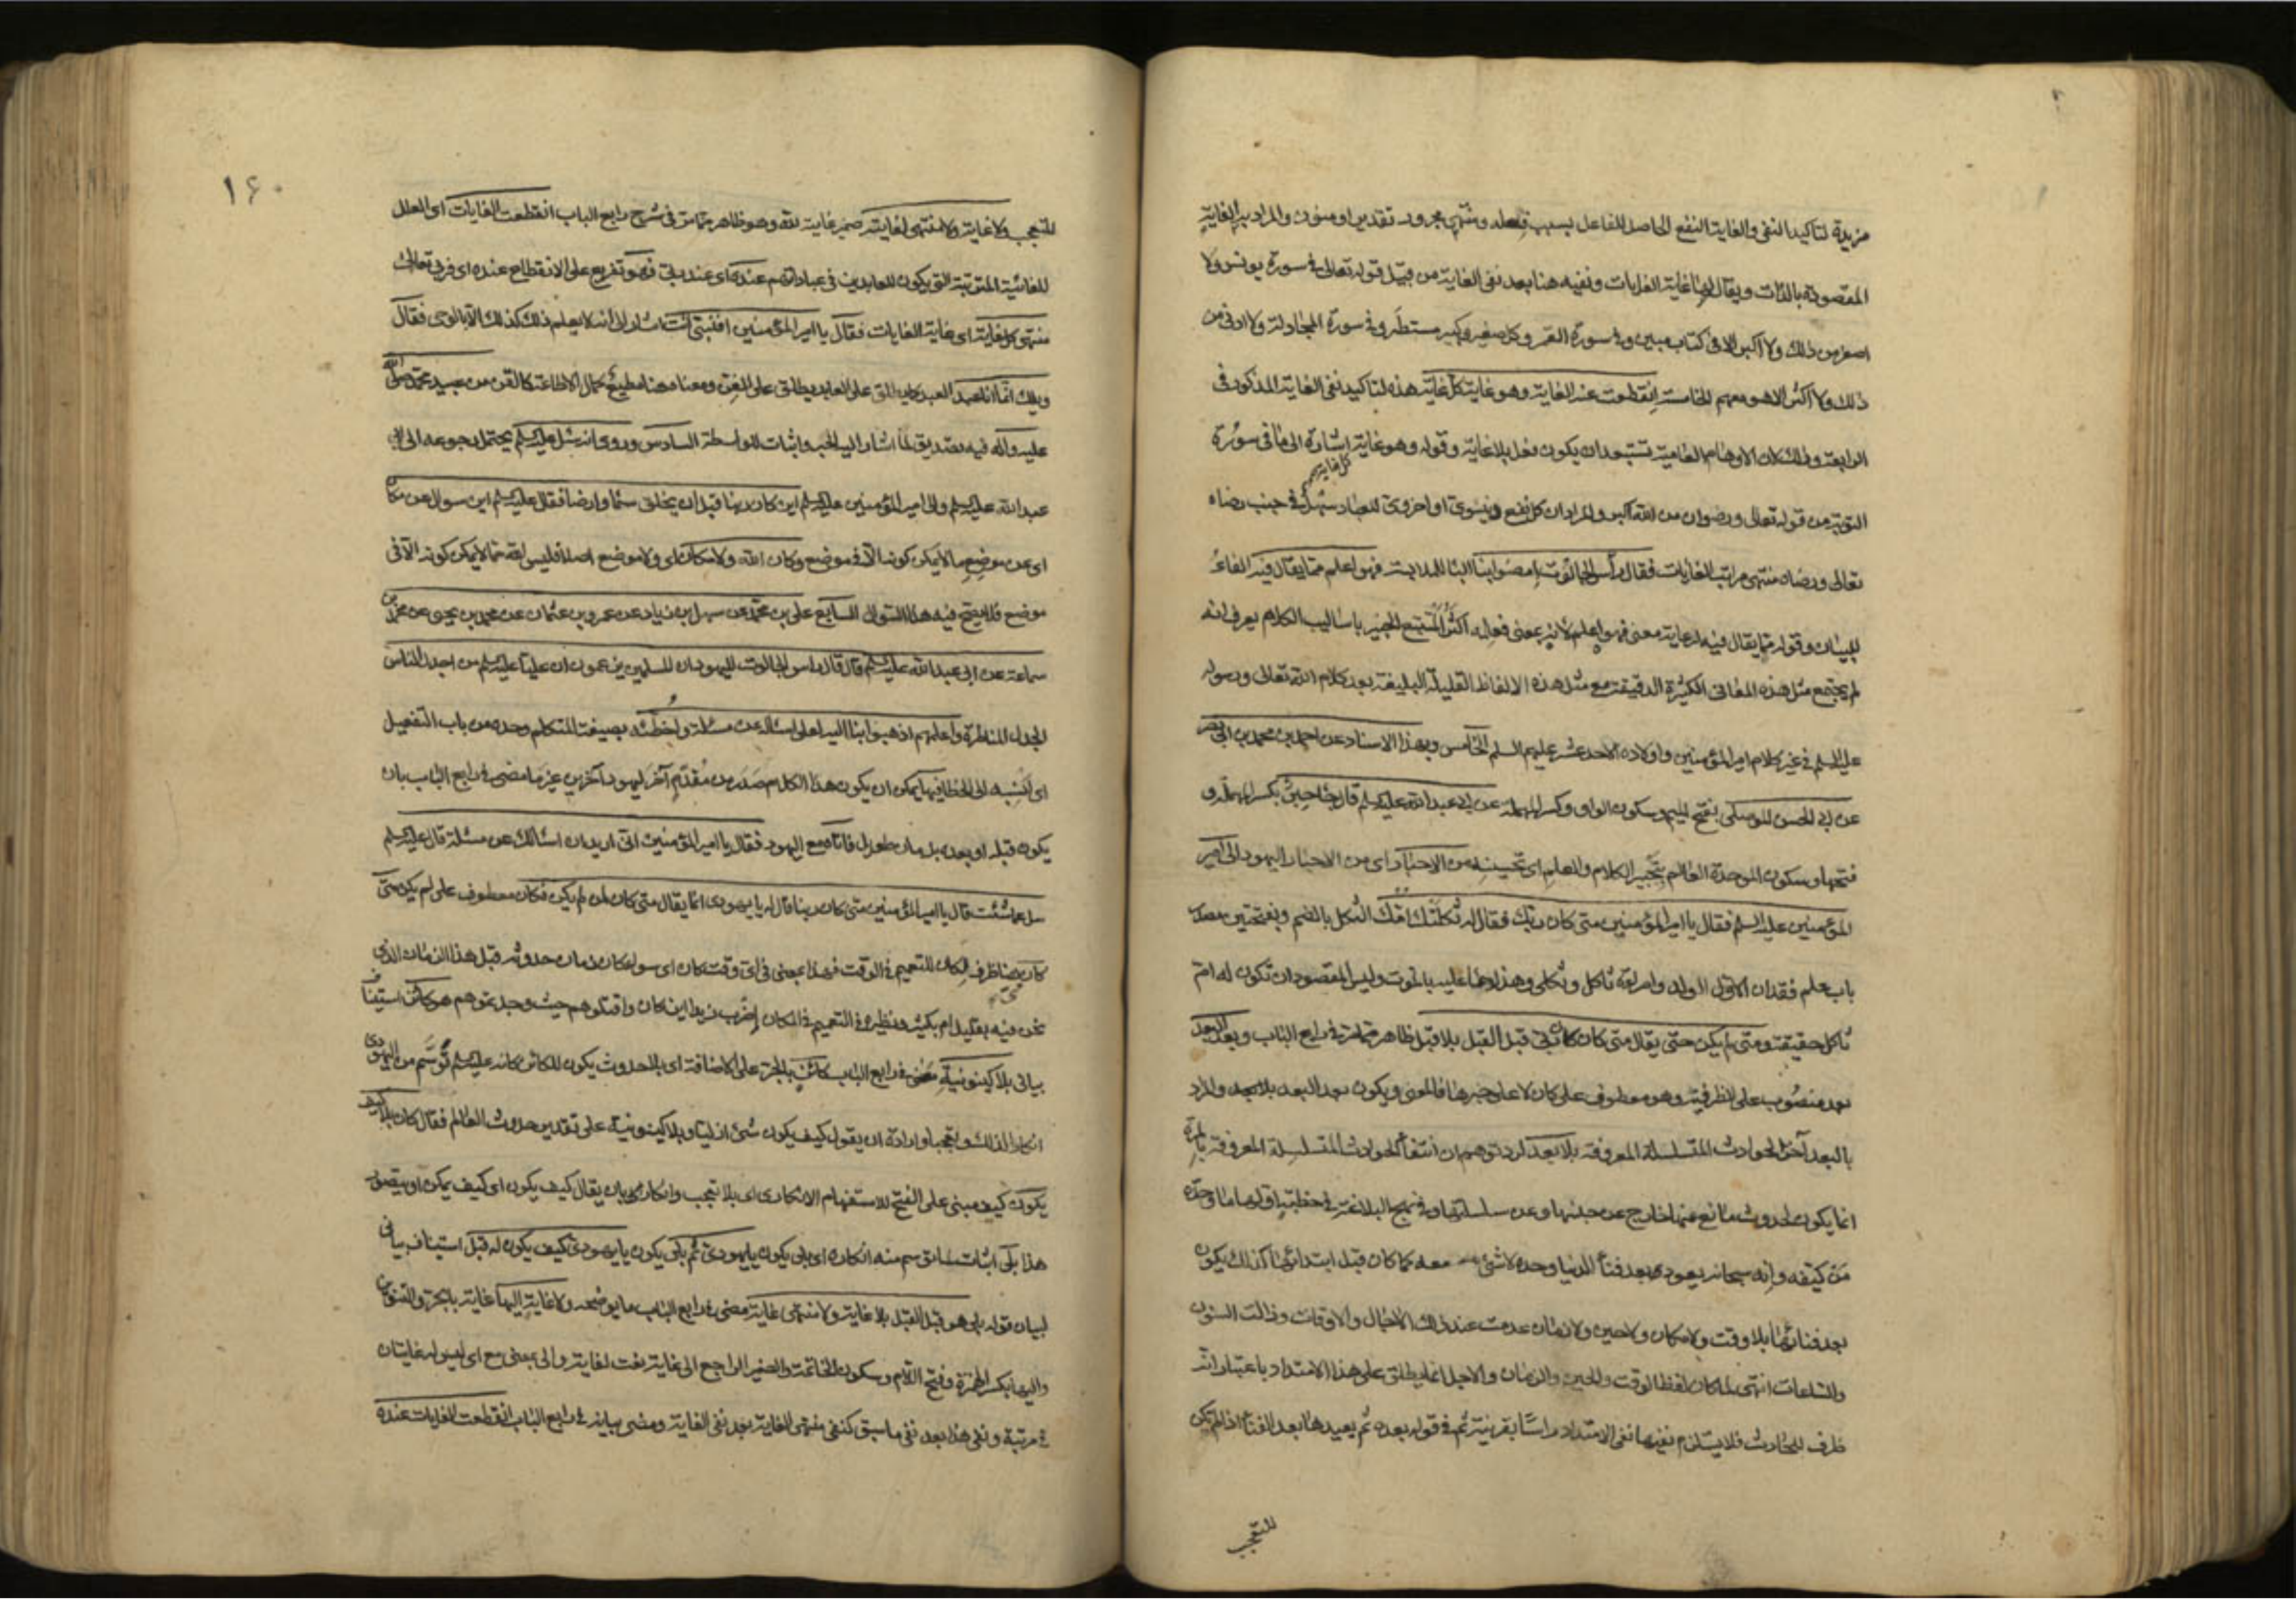 مزيدة لتاكيد النفى والغاية النفع الحاصل للفاعل بسبب فعله ومنتهى مجرور تقديرا ومنون والمراد به الغاية
المقصودة بالذات ويقال لها غاية الغايات ونفيه هنا بعد نفى الغاية من قبيل قوله تعالى فى سورة يونس ولا
اصغر من ذلك ولا اكبر الا فى كتاب مبين وفى سورة القمر وكل صغير وكبير مستطر وفى سورة المجادلة ولا ادنى من
ذلك ولا اكثر الا هو معهم الخامسة انقطعت عنه الغاية وهو غاية كل غاية هذه لتاكيد نفى الغاية المذكور فى
الرابعة وذلك لان الاوهام العامية تستبعد ان يكون فعل بلا غاية وقوله وهو غاية كل غاية اشارة الى ما فى سورة
التوبة من قوله تعالى ورضوان من الله اكبر والمراد ان كل نفع دنيوى او اخروى للعباد سهل فى جنب رضاه
تعالى ورضاه منتهى مراتب الغايات فقال رأس الجالوت امضوا بنا الباء للمعية فهو اعلم مما يقال فيه الفاء
للبيان وقوله مما يقال فيه لرعاية معنى فهو اعلم لانه بمعنى فعله اكثر المتتبع الخبير باساليب الكلام يعرف انه
لم يجتمع مثل هذه المعانى الكثيرة الدقيقة مع مثل هذه الالفاظ القليلة البليغة بعد كلام الله تعالى ورسوله
عليه السلم فى غير كلام امير المؤمنين واولاده الاحد عشر عليهم السلم الخامس وبهذا الاسناد عن احمد بن محمد بن ابى نصر
عن ابى الحسن الموصلى بفتح الميم وسكون الواو وكسر المهملة عن ابى عبد الله عليه السلم قال جاء حبر بكسر المهملة و
فتحها وسكون الموحدة العالم بتحبير الكلام والعلم اى تحسينه من الاحبار اى من الاحبار اليهود الى امير
المؤمنين عليه السلم فقال يا امير المؤمنين متى كان ربك فقال له ثكلتك امك الثكل بالضم وبفتحتين مصدر
باب علم فقدان الاول الولد وامراة ثاكل وثكلى وهذا دعاء عليه بالموت وليس المقصود ان تكون له ام
ثاكل حقيقة ومتى لم يكن حتى يقال متى كان كان ربى قبل القبل بلا قبل ظاهر مما مر فى رابع الباب وبعد البعد
بعد منصوب على الظرفية وهو معطوف على كان لا على خبرها فالمعنى ويكون بعد البعد بلا بعد والمراد
بالبعد آخر الحوادث المتسلسلة المعروفة بلا بعد لرد توهم ان انتفاء الحوادث المتسلسلة المعروفة بالمرة
انما يكون لحدوث مانع عنها خارج عن جنسها وعن سلسلتها وفى نهج البلاغة فى خطبة اولها ما وحده
من كيفه وانه سبحانه يعود بعد فناء الدنيا وحده لا شئ معه كما كان قبل ابتدائها كذلك يكون
بعد فنائها بلا وقت ولا مكان ولا حين ولا زمان عدمت عند ذلك الآجال والاوقات وزالت السنون
والساعات انتهى لما كان لفظ الوقت والحين والزمان والاجل انما يطلق على هذا الامتداد باعتبار انه
ظرف للحادث فلا يستلزم نفيها نفى الامتداد راسا بقرينة ثم فى قوله بعده ثم يعيدها بعد الفناء اذا لم يكن
للتعجب
١٦٠
للتعجب ولا غاية ولا منتهى لغايته ضمير غايته لله وهو ظاهر مما مر فى شرح رابع الباب انقطعت الغايات اى العلل
الغائية المترتبة التى يكون للعابدين فى عباداتهم عنده اى عند ربى فهو تفريع على الانقطاع عنده اى فربى تعالى
منتهى كل غاية اى غاية الغايات فقال يا امير المؤمنين افنبى انت اشار الى انه لا يعلم ذلك كذلك الا بالوحى فقال
ويلك انما انا عبد العبد كما يطلق على العابد يطلق على القن ومعناه هنا مطيع كمال الاطاعة كالقن من عبيد محمد صلى الله
عليه وآله فيه تصديق لما اشار اليه الحبر واثبات للواسطة السادس وروى انه سئل عليه السلم يحتمل رجوعه الى ابى
عبد الله عليه السلم والى امير المؤمنين عليه السلم اين كان ربنا قبل ان يخلق سماء وارضا فقال عليه السلم اين سوال عن مكان
اى عن موضع ما لا يمكن كونه الا فى موضع وكان الله ولا مكان اى ولا موضع اصلا فليس الله مما لا يمكن كونه الا فى
موضع فلا يصح فيه هذا السوال السابع على بن محمد عن سهل بن زياد عن عمرو بن عثمان عن محمد بن يحيى عن محمد بن
سماعة عن ابى عبد الله عليه السلم قال قال راس الجالوت لليهود ان المسلمين يزعمون ان عليا عليه السلم من اجدل الناس
الجدل المناظرة واعلمهم اذهبوا بنا اليه لعلى اساله عن مسئلة واخطئه بصيغة المتكلم وحده من باب التفعيل
اى انسبه الى الخطا فيها يمكن ان يكون هذا الكلام صدر من مقدم آخر ليهود آخرين غير ما مضى فى رابع الباب بان
يكون قبله او بعده بزمان طويل فاتاه مع اليهود فقال يا امير المؤمنين انى اريد ان اسالك عن مسئلة قال عليه السلم
سل عما شئت قال يا امير المؤمنين متى كان ربنا قال له يا يهودى انما يقال متى كان لمن لم يكن فكان معطوف على لم يكن متى
كان هنا ظرف لكان للتعميم فى الوقت فهذا بمعنى فى اى وقت كان اى سواء كان زمان حدوثه قبل هذا الزمان الذى
نحن فيه بقليل ام بكثير ونظيره فى التعميم فى المكان اضرب زيدا اين كان واقتلوهم حيث وجدتموهم هو كائن استيناف
بيانى بلا كينونية مضى فى رابع الباب كائن بالجر على الاضافة اى بلا حدوث يكون للكائن كانه عليه السلم توسم من اليهودى
انكارا لذلك وتعجبا وارادة ان يقول كيف يكون شئ ازليا وبلا كينونية على تقدير حدوث العالم فقال كان بلا كيف
يكون كيف مبنى على الفتح للاستفهام الانكارى اى بلا تعجب وانكار بان يقال كيف يكون اى كيف يمكن او يتصور
هذا بلى اثبات لما توسم منه انكاره اى بلى يكون يا يهودى ثم بلى يكون يا يهودى كيف يكون له قبل استيناف بيانى
لبيان قوله بلى هو قبل القبل بلا غاية ولا منتهى غاية مضى فى رابع الباب ما يوضحه ولا غاية اليها غاية بالجر والتنوين
واليها بكسر الهمزة وفتح اللام وسكون الخاتمة والضمير الراجع الى غاية نعت لغاية والى بمعنى مع اى ليس له غايتان
فى مرتبة ونفى هذا بعد نفى ما سبق كنفى منتهى الغاية بعد نفى الغاية ومضى بيانه فى رابع الباب انقطعت الغايات عنده